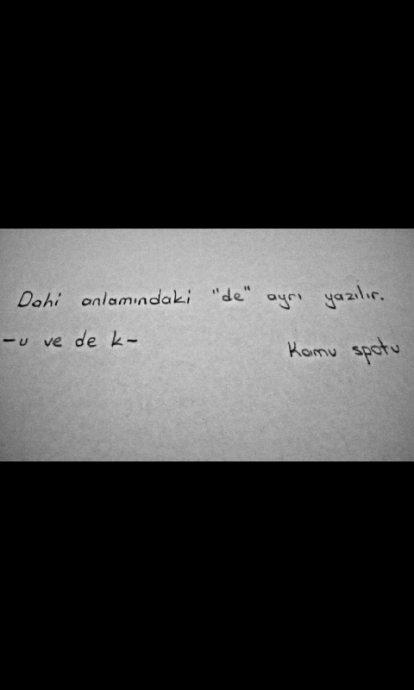 Dahi anlamındaki "de" ayrı yazılır.
-u ve de k-
Kamu spotu